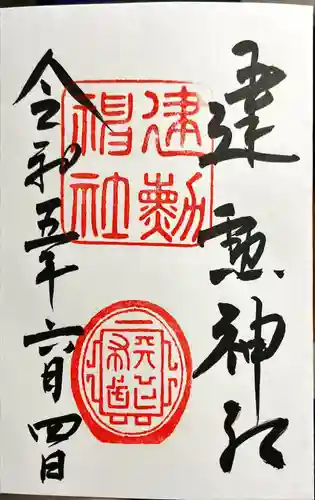 建勲神社
建勲神社
令和五年六月四日